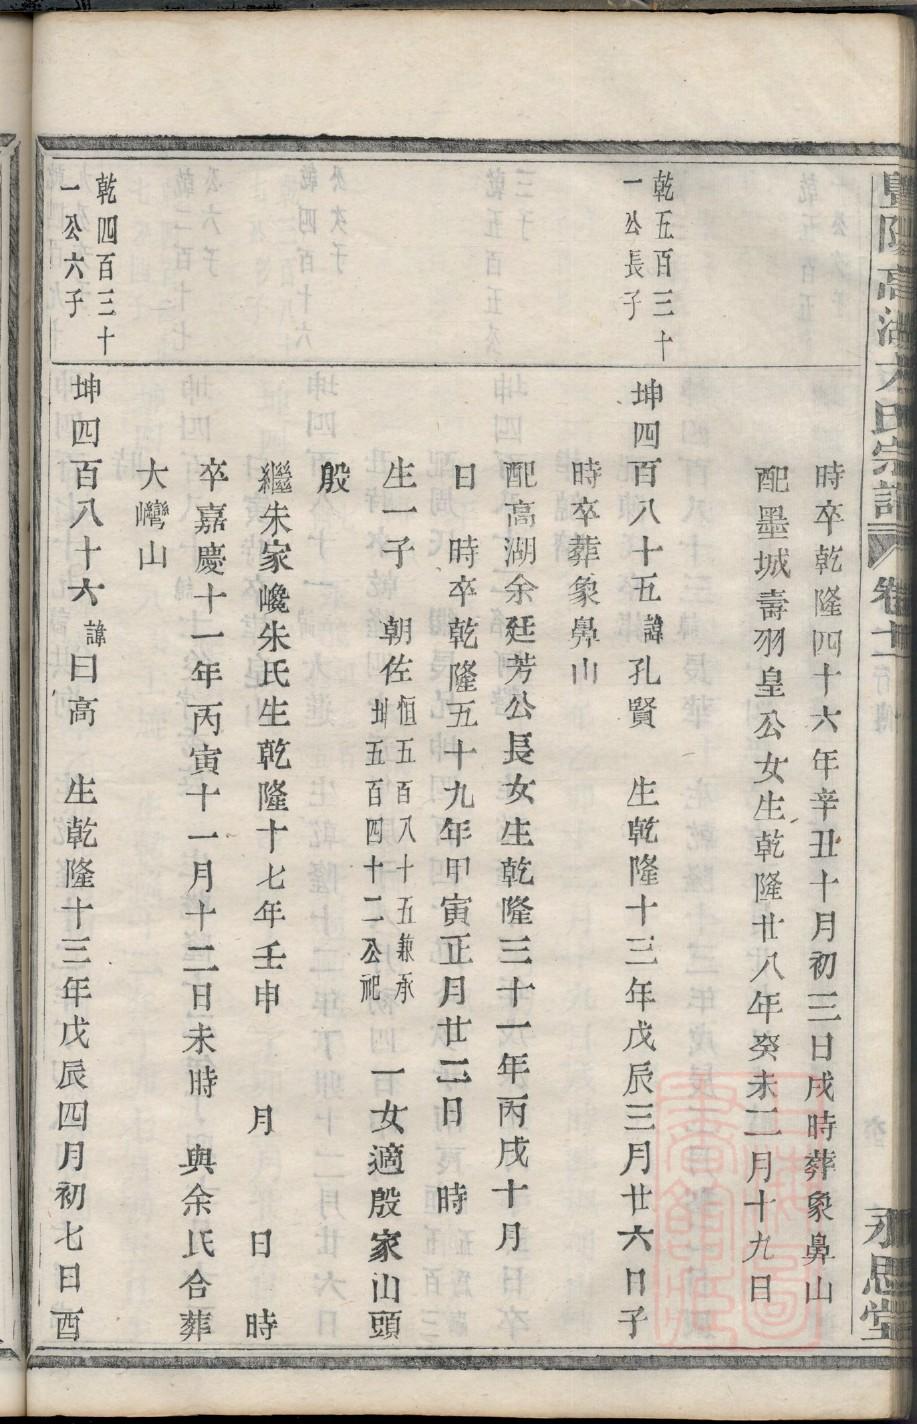 暨陽高湖方氏宗譜 卷十 行傳 永思堂
時卒乾隆四十六年辛丑十月初三日戌時葬象鼻山
配墨城壽羽皇公女生乾隆廿八年癸未二月十九日
乾五百三十
一公長子
坤四百八十五諱孔賢 生乾隆十三年戊辰三月廿六日子
時卒葬象鼻山
配高湖余廷芳公長女生乾隆三十一年丙戌十月
日 時卒乾隆五十九年甲寅正月廿二日 時
生一子 朝佐恒五百八十五兼承卌五百四十二公祀 一女適殷家山頭
殷
繼朱家巉朱氏生乾隆十七年壬申 月 日 時
卒嘉慶十一年丙寅十一月十二日未時 與余氏合葬
大巒山
乾四百三十
一公六子
坤四百八十六諱曰高 生乾隆十三年戊辰四月初七日酉